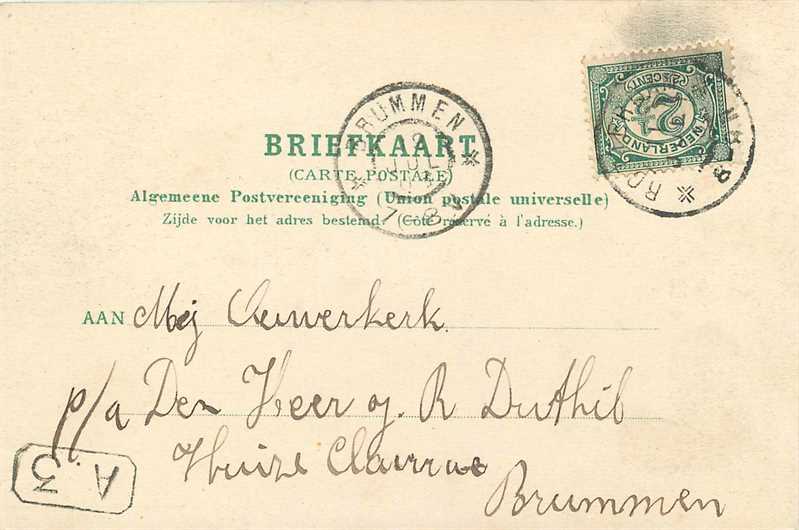 BRUMMEN
JUL
7-8 V
2½ CENT
NEDERLAND
BRIEFKAART
(CARTE POSTALE)
Algemeene Postvereeniging (Union postale universelle)
Zijde voor het adres bestemd. (Côté réservé à l'adresse.)
AAN Mej Ouwerkerk
p/a Den Heer J. R Duthil
Huize
Brummen
A 3